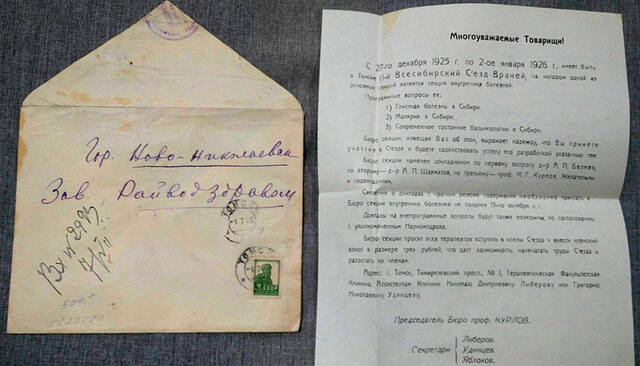 Гор. Ново-Николаевск
Зав. Райводздравом
Вх N 2993
ТОМСК
ТОМСК
Многоуважаемые Товарищи!
С 27-го декабря 1925 г. по 2-ое января 1926 г. имеет быть
в Томске II-й Всесибирский С'езд Врачей, на котором одной из
основных секций является секция внутренних болезней.
Программные вопросы ее:
1) Глистная болезнь в Сибири.
2) Малярия в Сибири.
3) Современное состояние бальнеологии в Сибири.
Бюро секции, извещая Вас об этом, выражает надежду, что Вы примете
участие в С'езде и будете содействовать успеху его разработкой указанных тем.
Бюро секции намечен докладчиком по первому вопросу д-р А. П. Беляев,
по второму—д-р А. П. Шахматов, по третьему—проф. М. Г. Курлов. Желательны
и содокладчики.
Сведения о докладах с кратким резюме содержания необходимо прислать в
Бюро секции внутренних болезней не позднее 15-го октября с. г.
Доклады на внепрограммные вопросы будут также возможны, по согласованию
с уполномоченным Наркомздрава.
Бюро секции просит всех терапевтов вступить в члены С'езда и внести членский
взнос в размере трех рублей, что даст возможность напечатать труды С'езда и
разослать их членам.
Адрес: г. Томск, Тимирязевский просп., № 1, Терапевтическая Факультетская
Клиника, Ассистентам Клиники Николаю Дмитриевичу Либерову или Григорию
Николаевичу Удинцеву.
Председатель Бюро проф. КУРЛОВ.
Секретари
Либеров.
Удинцев.
Яблоков.